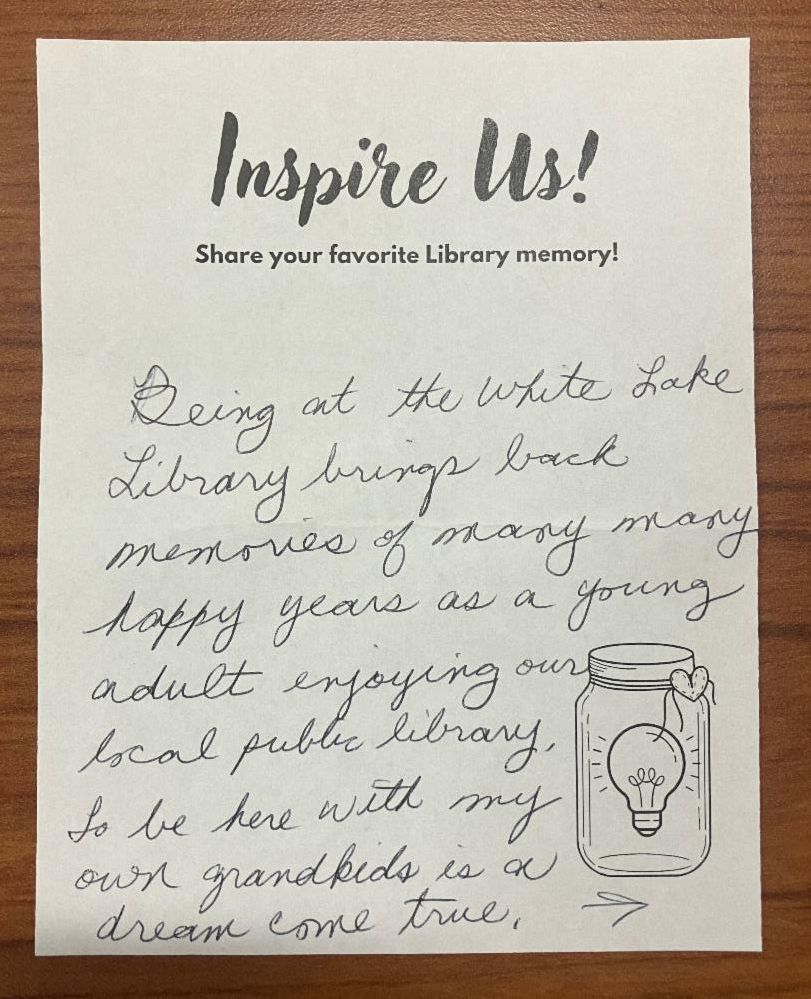 Inspire Us!
Share your favorite Library memory!
Being at the White Lake
Library brings back
memories of many many
happy years as a young
adult enjoying our
local public library.
To be here with my
own grandkids is a
dream come true. →